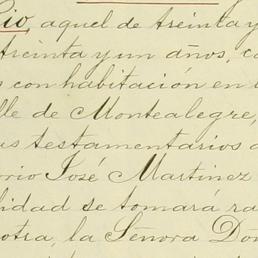 cio, aquel de treinta y
treinta y un años, ca
s con habitación en l
lle de Montealegre,
as testamentarios d
orio José Martinez
lidad se tomará ra
otra, la Señora Don